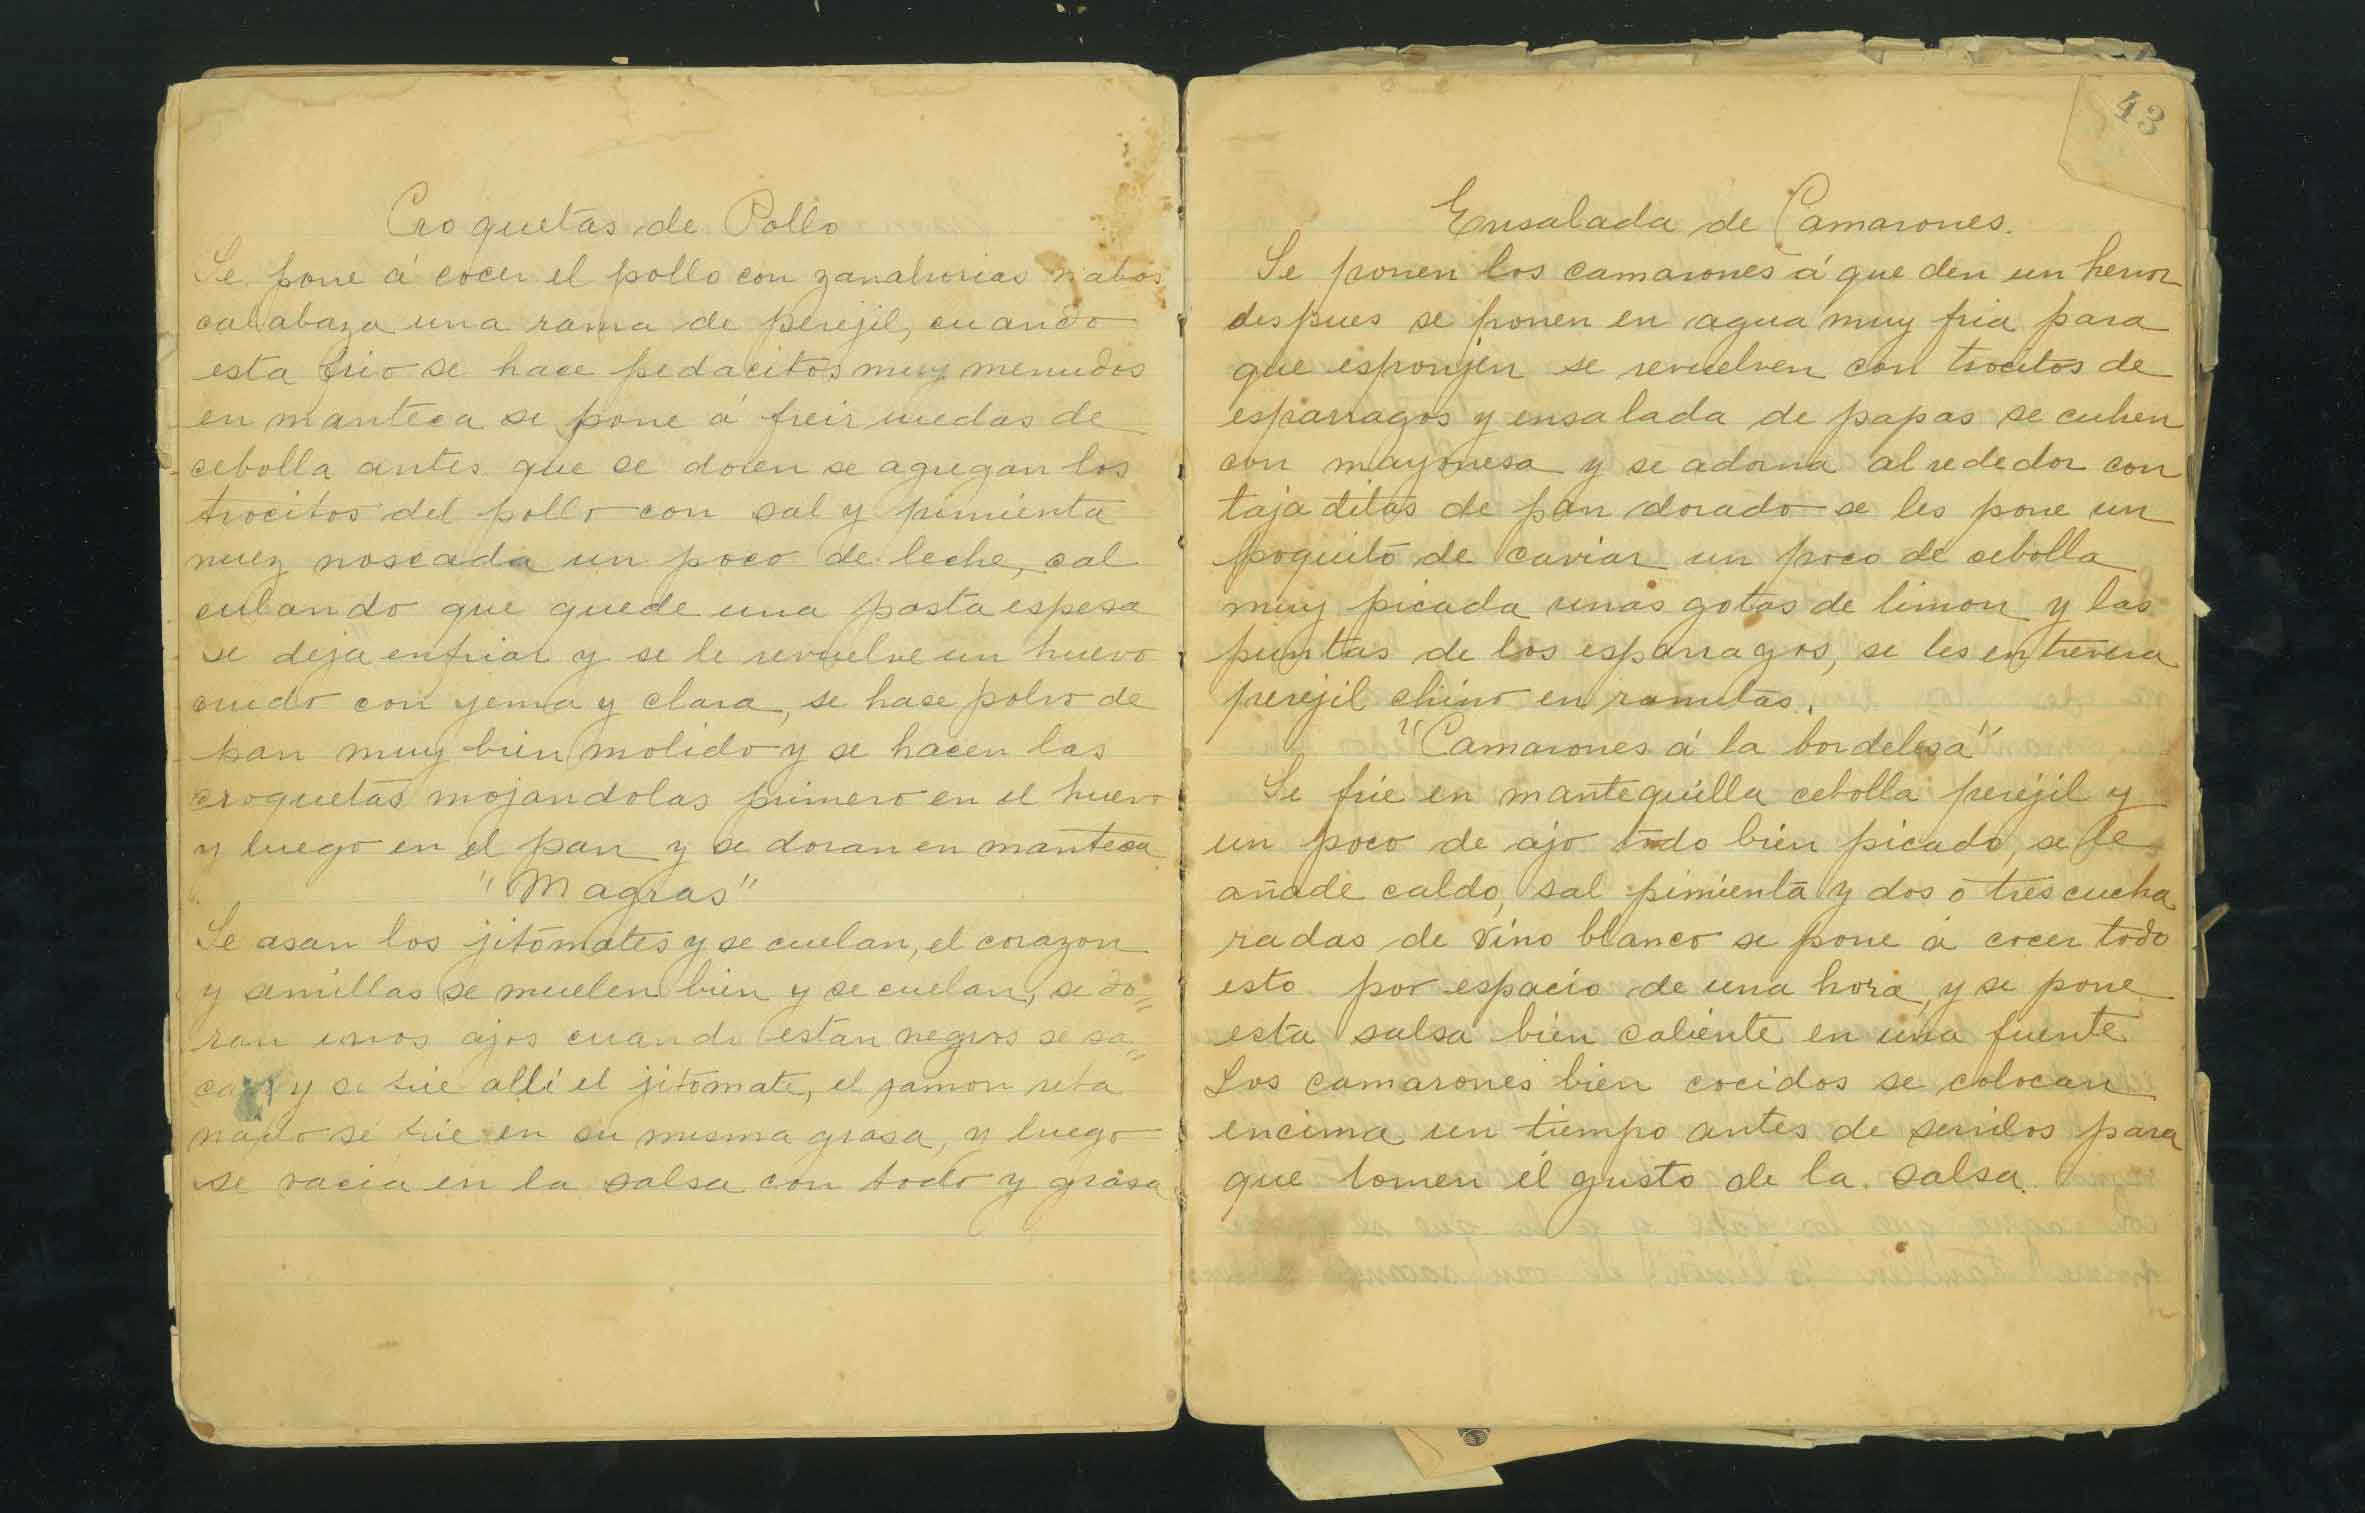 Croquetas de Pollo
Se pone á cocer el pollo con zanahorias nabos
calabaza una rama de perejil, cuando
esta frio se hace pedacitos muy menudos
en manteca se pone á freir ruedas de
cebolla antes que se doren se agregan los
trocitos del pollo con sal y pimienta
nuez noscada un poco de leche, cal
culando que quede una pasta espesa
se deja enfriar y se le revuelve un huevo
crudo con yema y clara, se hace polvo de
pan muy bien molido y se hacen las
croquetas mojandolas primero en el huevo
y luego en el pan y se doran en manteca
"Magras"
Se asan los jitomates y se cuelan, el corazon
y semillas se muelen bien y se cuelan, se do=
ran unos ajos cuando estan negros se sa=
can y se frie allí el jitomate, el jamon reba
nado se frie en su misma grasa, y luego
se vacia en la salsa con todo y grasa
43
Ensalada de Camarones.
Se ponen los camarones á que den un hervor
despues se ponen en agua muy fria para
que esponjen se revuelven con trocitos de
esparragos y ensalada de papas se cubren
con mayonesa y se adorna al rededor con
tajaditas de pan dorado se les pone un
poquito de caviar un poco de cebolla
muy picada unas gotas de limon y las
puntas de los esparragos, se les entrevera
perejil chino en ramitas.
"Camarones á la bordelesa"
Se frie en mantequilla cebolla perejil y
un poco de ajo todo bien picado, se le
añade caldo, sal pimienta y dos o tres cucha
radas de vino blanco se pone á cocer todo
esto por espacio de una hora, y se pone
esta salsa bien caliente en una fuente
Los camarones bien cocidos se colocan
encima un tiempo antes de servilos para
que tomen el gusto de la salsa.